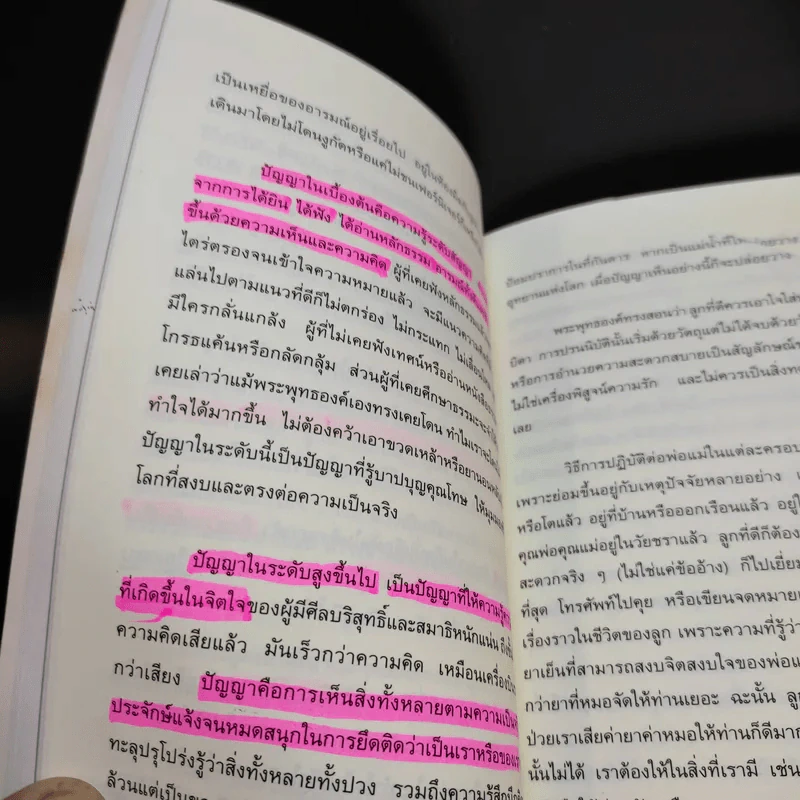 เป็นเหยื่อของอารมณ์อยู่เรื่อยไป
เดินมาโดยไม่โดนงูกัดหรือแค่ไม่ชนเฟอร์นิเจอร์
ปัญญาในเบื้องต้นคือความรู้ระดับสัญญา
จากการได้ยิน ได้ฟัง ได้อ่านหลักธรรม
ขึ้นด้วยความเห็นและความคิด ผู้ที่เคยฟังหลักธรรม
ไตร่ตรองจนเข้าใจความหมายแล้ว จะมีแนวความคิด
แล่นไปตามแนวที่ดีก็ไม่ตกร่อง ไม่กระแทก
มีใครกลั่นแกล้ง ผู้ที่ไม่เคยฟังเทศน์หรืออ่านหนังสือ
โกรธแค้นหรือกลัดกลุ้ม ส่วนผู้ที่เคยศึกษาธรรมะ
เคยเล่าว่าแม้พระพุทธองค์เองทรงเคยโดน ทำไมเรา
ทำใจได้มากขึ้น ไม่ต้องคว้าเอาขวดเหล้าหรือยานอน
ปัญญาในระดับนี้เป็นปัญญาที่รู้บาปบุญคุณโทษ
โลกที่สงบและตรงต่อความเป็นจริง
ปัญญาในระดับสูงขึ้นไป เป็นปัญญาที่ให้ความรู้
ที่เกิดขึ้นในจิตใจของผู้มีศีลบริสุทธิ์และสมาธิหนักแน่น
ความคิดเสียแล้ว มันเร็วกว่าความคิด เหมือนเครื่องบิน
กว่าเสียง ปัญญาคือการเห็นสิ่งทั้งหลายตามความเป็น
ประจักษ์แจ้งจนหมดสนุกในการยึดติดว่าเป็นเราหรือของ
ทะลุปรุโปร่งรู้ว่าสิ่งทั้งหลายทั้งปวง รวมถึงความรู้สึก
ล้วนแต่เป็น
อุทยานแห่งโลก เมื่อปัญญาเห็นอย่างนี้ก็จะปล่อยวาง
พระพุทธองค์ทรงสอนว่า ลูกที่ดีควรเอาใจใส่
บิดา การปรนนิบัตินั้นเริ่มด้วยวัตถุแต่ไม่ได้จบด้วย
หรือการอำนวยความสะดวกสบายเป็นสัญลักษณ์
ไม่ใช่เครื่องพิสูจน์ความรัก และไม่ควรเป็นสิ่ง
เลย
วิธีการปฏิบัติต่อพ่อแม่ในแต่ละครอบ
เพราะย่อมขึ้นอยู่กับเหตุปัจจัยหลายอย่าง
หรือโตแล้ว อยู่ที่บ้านหรือออกเรือนแล้ว อยู่
คุณพ่อคุณแม่อยู่ในวัยชราแล้ว ลูกที่ดีก็ต้อง
สะดวกจริง ๆ (ไม่ใช่แค่ข้ออ้าง) ก็ไปเยี่ยม
ที่สุด โทรศัพท์ไปคุย หรือเขียนจดหมาย
เรื่องราวในชีวิตของลูก เพราะความที่รู้ว่า
ยาเย็นที่สามารถสงบจิตสงบใจของพ่อแม่
กว่ายาที่หมอจัดให้ท่านเยอะ ฉะนั้น ลู
ป่วยเราเสียค่ายาค่าหมอให้ท่านก็ดีมาก
นั้นไม่ได้ เราต้องให้ในสิ่งที่เรามี เช่น